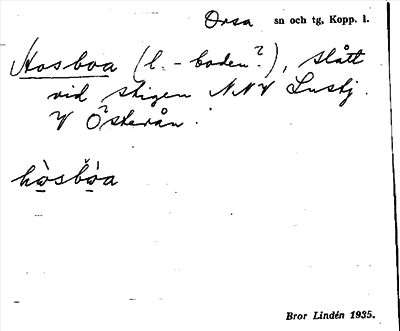 Orsa sn och tg, Kopp. l.
Hosboa (l. -boden?), slått
vid stigen NNV Lustj.
V Österån.
hòsbòa
Bror Lindén 1935.